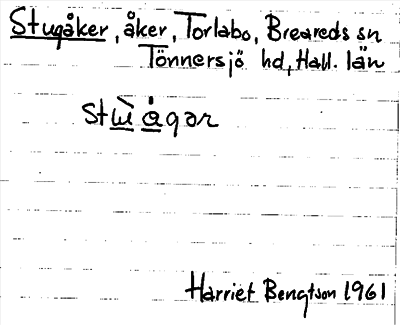 Stugåker, åker, Torlabo, Breareds sn
Tönnersjö hd, Hall. län
stù̱ å̱gər
Harriet Bengtson 1961